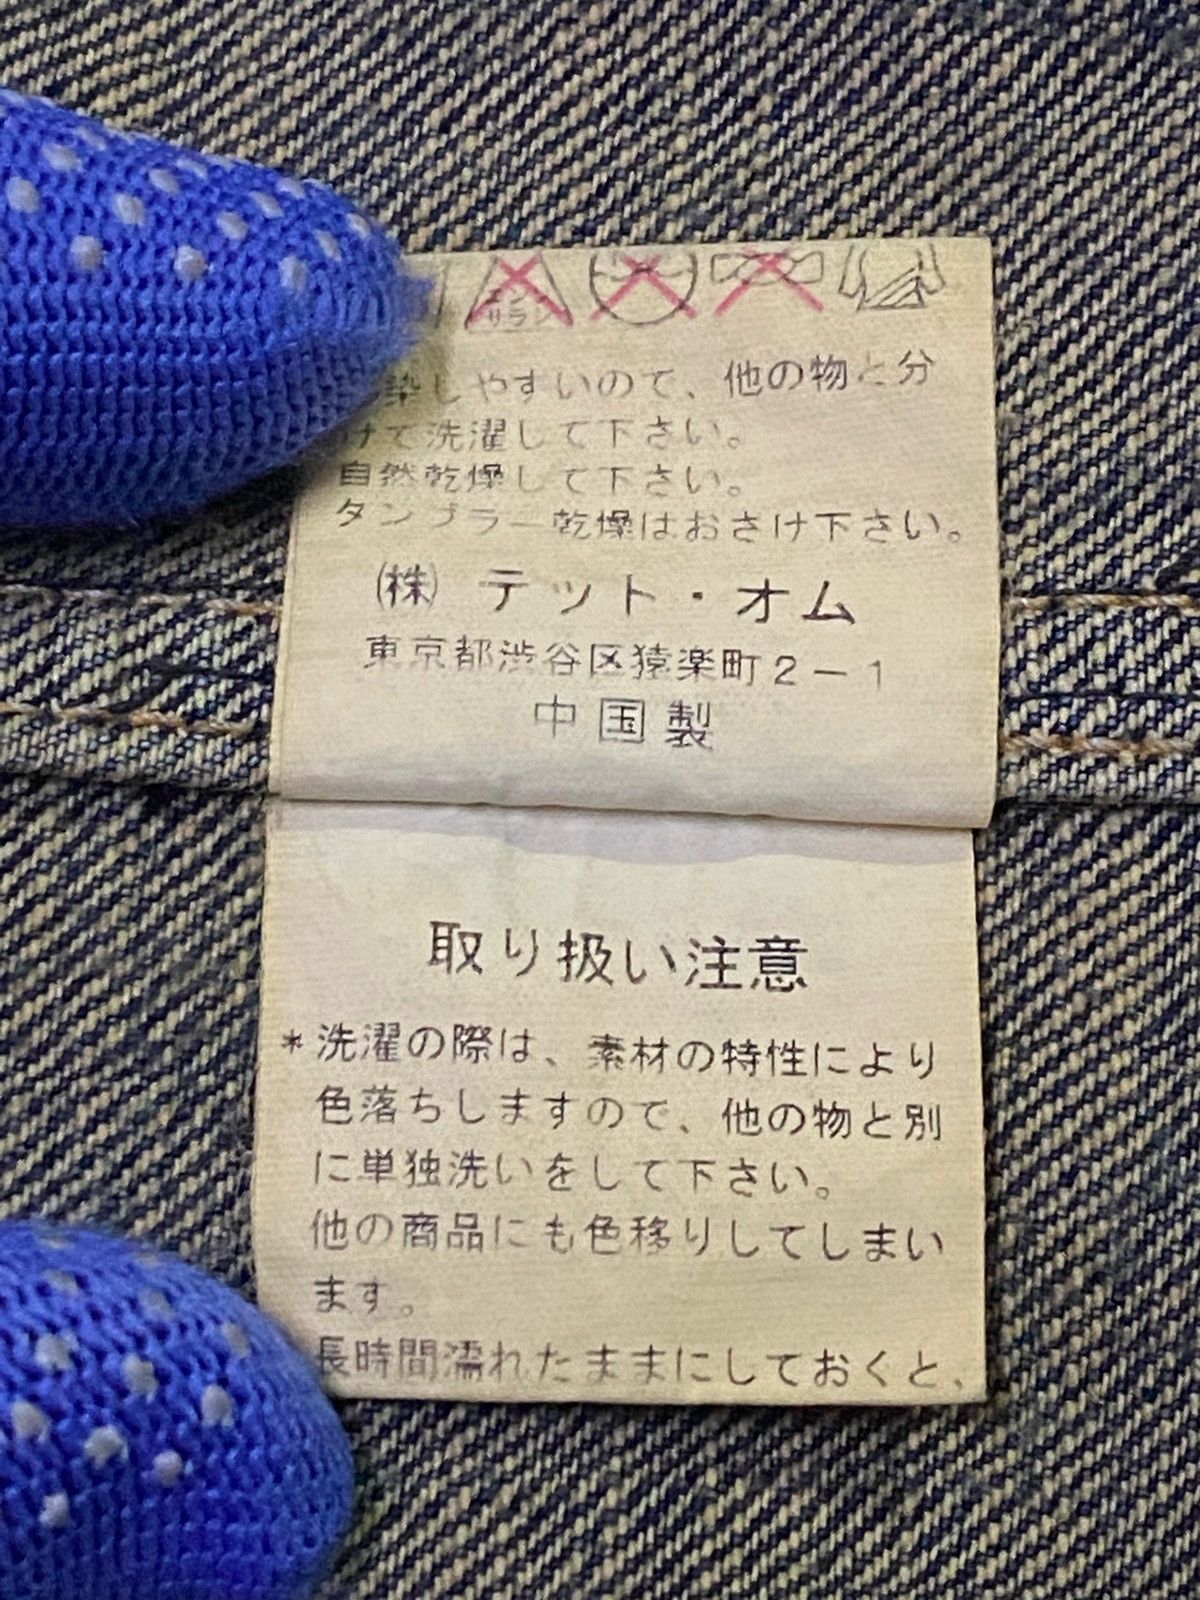 しやすいので、他の物と分
けて洗濯して下さい。
自然乾燥して下さい。
タンブラー乾燥はおさけ下さい。
㈱ テット・オム
東京都渋谷区猿楽町2-1
中国製
取り扱い注意
*洗濯の際は、素材の特性により
色落ちしますので、他の物と別
に単独洗いをして下さい。
他の商品にも色移りしてしまい
ます。
長時間濡れたままにしておくと、